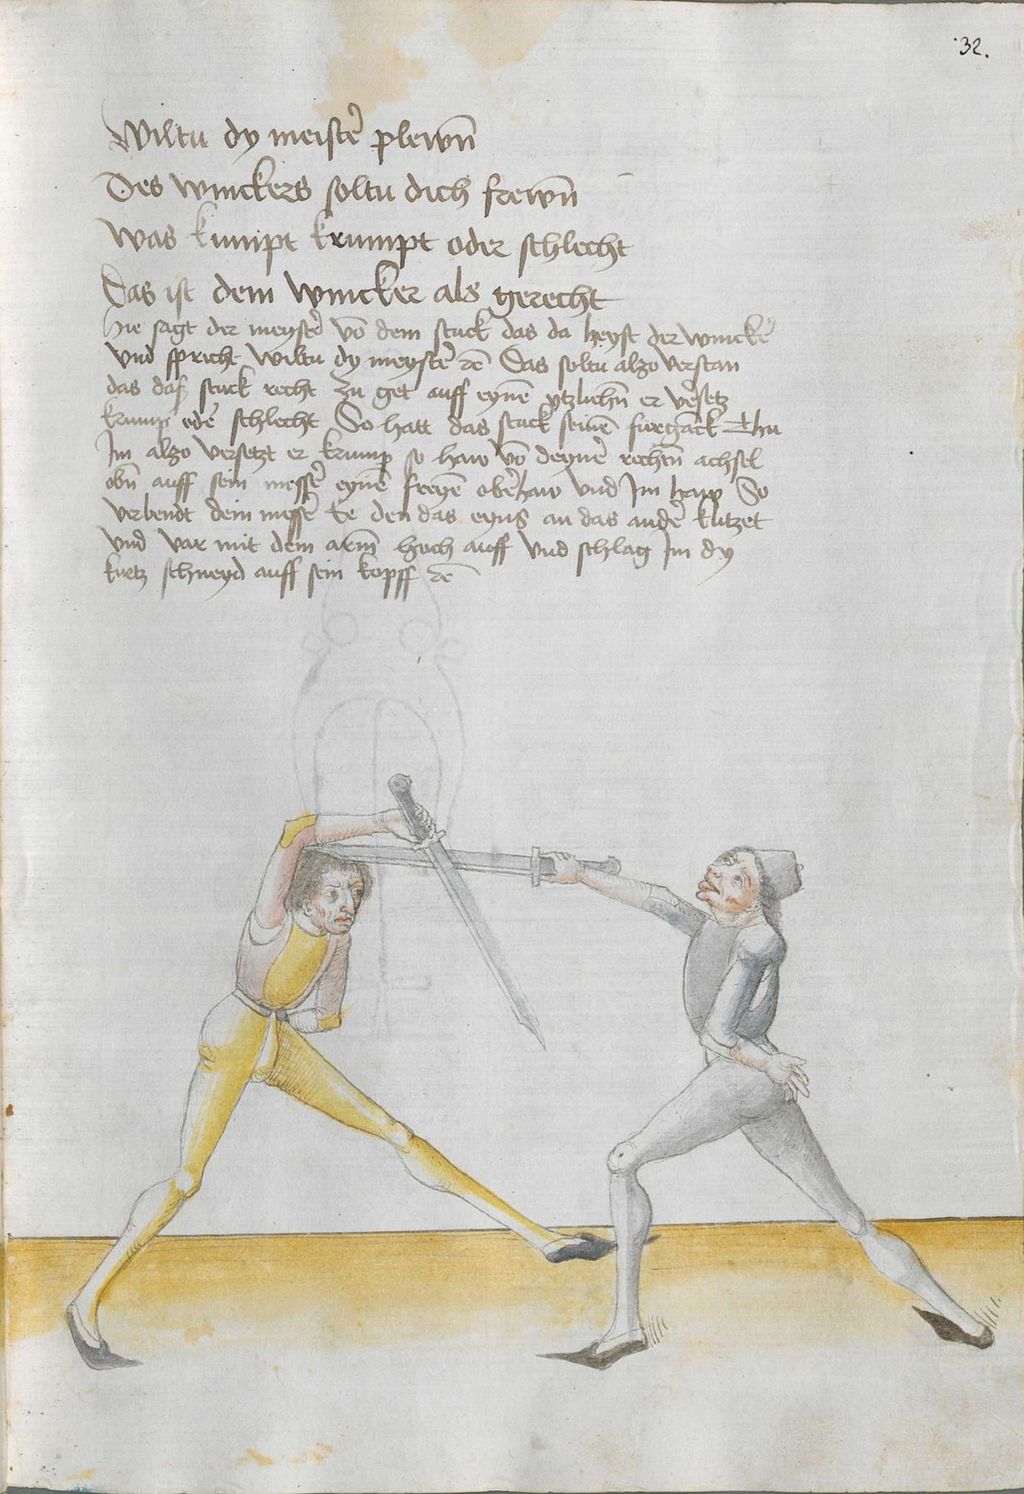 32.
Wiltu dy meister plewn̄
Des winckers soltu dich frewn̄
Was kumpt krumpt oder schlecht
Das ist dem wincker als gerecht
Hie sagt der meyster vō dem stuck das da heyst der winckeʾ
vnd spricht wiltu dy meysteʾ rē Das soltu alzo verstan
das daß stuck recht zu get auff eynē ytzlichn̄ er veʾsetz
krump odeʾ schlecht So hatt das stuck seinē fürganck Thu
Im alzo versetzt er krump so haw vō deyneʾ rechtn̄ achsel
obn̄ auff sein messeʾ eynē freyē obeʾhaw vnd Im haw So
verbendt dein messeʾ Ee den das eyns an das andeʾ klitzet
vnd var mit dem arm̄ hoch auff vnd schlag Im dy
kurtz schneyd auff sein kopff rē